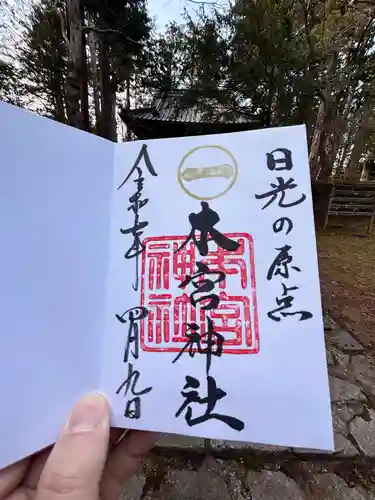 日光の原点
一
本宮神社
本宮神社
令和七年四月九日